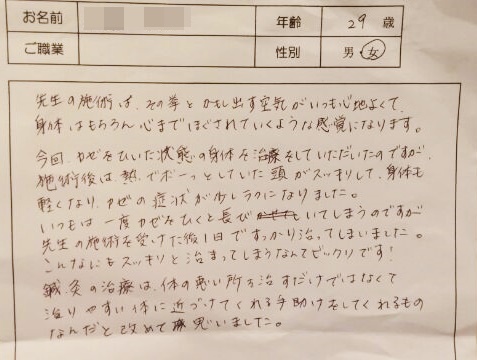 お名前 年齢 29 歳
ご職業 性別 男・女
先生の施術は、その拳とかもし出す空気がいつも心地よくて、
身体はもちろん心までほぐされていくような感覚になります。
今回、カゼをひいた状態の身体を治療をしていただいたのですが、
施術後は熱でボーッとしていた頭がスッキリして、身体も
軽くなり、カゼの症状が少しラクになりました。
いつもは一度カゼをひくと長びいてしまうのですが
先生の施術を受けた後1日ですっかり治ってしまいました。
こんなにもスッキリと治まってしまうなんてビックリです!
鍼灸の治療は、体の悪い所を治すだけではなくて
治りやすい体に近づけてくれる手助けをしてくれるもの
なんだと改めて思いました。